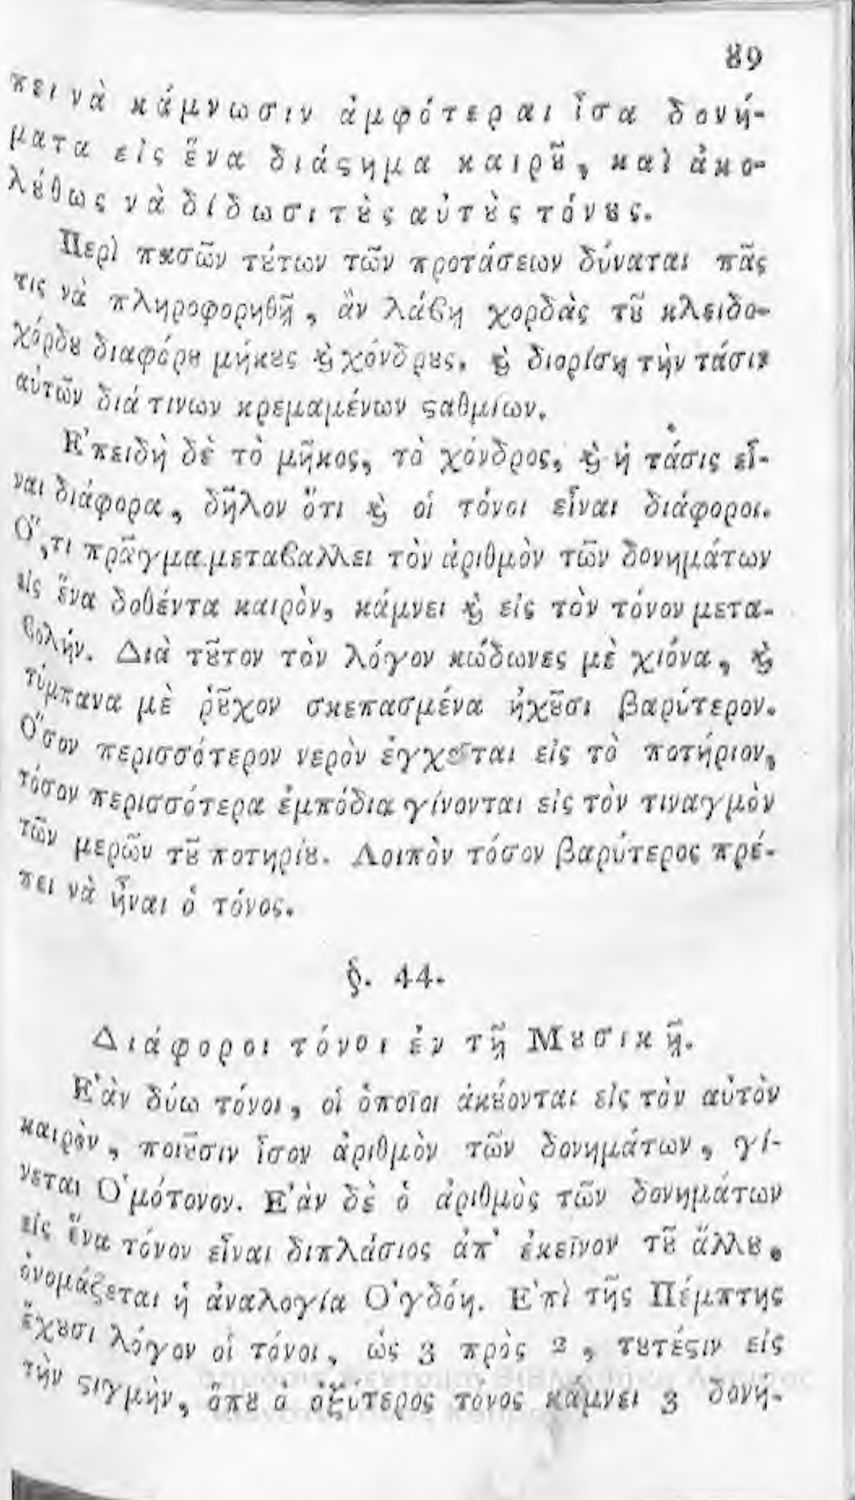 89
πει νὰ κάμνωσιν ἀμφότεραι ἶσα δονή-
ματα εἰς ἕνα διάϛημα καιρȣ͂, καὶ ἀκο-
λȣ́θως νὰ δίδωσι τȣ̀ς αὐτȣ̀ς τόνȣς.
Περὶ πασῶν τȣ́των τῶν προτάσεων δύναται πᾶς
τις νὰ πληροφορηθῇ, ἂν λάβῃ χορδὰς τȣ͂ κλειδο-
χόρδȣ διαφόρȣ μήκȣς ϗ̀ χόνδρȣς, ϗ̀ διορίσῃ τὴν τάσιν
αὐτῶν διά τινων κρεμαμένων ϛαθμίων.
Ε᾽πειδὴ δὲ τὸ μῆκος, τὸ χόνδρος, ϗ̀ ἡ τάσις εἶ-
ναι διάφορα, δῆλον ὅτι ϗ̀ οἱ τόνοι εἶναι διάφοροι.
Ο῞,τι πρᾶγμα μεταβαλλει τὸν ἀριθμὸν τῶν δονημάτων
εἰς ἕνα δοθέντα καιρὸν, κάμνει ϗ̀ εἰς τὸν τόνον μετα-
βολήν. Διὰ τȣ͂τον τὸν λόγον κώδωνες μὲ χιόνα, ϗ̀
τύμπανα μὲ ῥȣ͂χον σκεπασμένα ἠχȣ͂σι βαρύτερον.
Ο῞σον περισσότερον νερὸν ἐγχεῖται εἰς τὸ ποτήριον,
τόσον περισσότερα ἐμπόδια γίνονται εἰς τὸν τιναγμὸν
τῶν μερῶν τȣ͂ ποτηρίȣ. Λοιπὸν τόσον βαρύτερος πρέ-
πει νὰ ἦναι ὁ τόνος.
§. 44.
Διάφοροι τόνοι ἐν τῇ Μȣσικῇ.
Ε᾽ὰν δύω τόνοι, οἱ ὁποῖοι ἀκȣ́ονται εἰς τὸν αὐτὸν
καιρὸν, ποιȣ͂σιν ἶσον ἀριθμὸν τῶν δονημάτων, γί-
νεται Ο῾μότονον. Ε᾽ὰν δὲ ὁ ἀριθμὸς τῶν δονημάτων
εἰς ἕνα τόνον εἶναι διπλάσιος ἀπ᾽ ἐκεῖνον τȣ͂ ἄλλȣ,
ὀνομάζεται ἡ ἀναλογία Ο᾽γδόη. Ε᾽πὶ τῆς Πέμπτης
ἔχȣσι λόγον οἱ τόνοι, ὡς 3 πρὸς 2, τȣτέϛιν εἰς
τὴν ϛιγμὴν, ὅπȣ ὁ ὀξύτερος τόνος κάμνει 3 δονή-